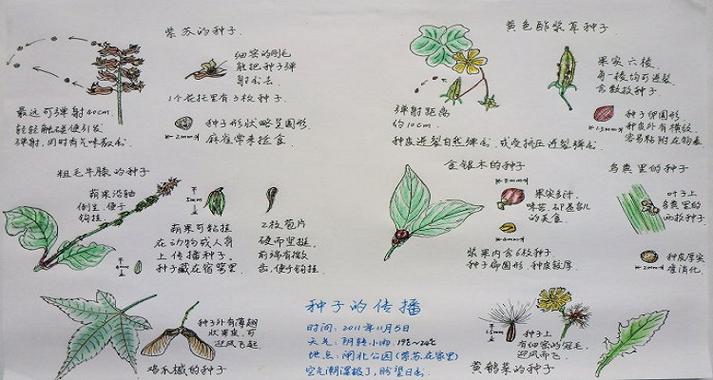 紫苏的种子
细密的刚毛
能把种子弹
射出去
1个花托里有3枚种子
最远可弹射40cm
轻轻触碰便引发
弹射,同时有气味散出
种子形状略是圆形
麻雀常来捡食
2mm
黄色酢浆草种子
果实六棱
每一棱均可迸裂
含数枚种子
弹射距离
约10cm
种子卵圆形
种皮外有横纹
容易粘附在物表
1.5mm
种皮迸裂自然弹出,或受挤压迸裂弹出
粗毛牛膝的种子
蒴果沿轴
倒生,便于
钩挂
5mm
蒴果可黏挂
在动物或人身
上传播种子。
种子藏在宿萼里
2枚苞片
硬而坚挺,
前端有微
齿,便于钩挂
金银木的种子
果实多汁,
味苦,却是鸟儿
的美食
浆果内含6枚种子
种子扁圆形,种皮较厚
鸟粪里的种子
叶子上
鸟粪里的
两粒种子
种皮厚实
难消化
2mm
种子外有薄翅
状果皮,可
迎风飞起
鸡爪槭的种子
种子的传播
时间:2011年11月5日
天气:阴转小雨,19℃~24℃
地点:闸北公园(紫苏在家里)
空气潮湿极了,盼望日出
种子上
有细密的冠毛,
迎风而飞
1.5mm
黄鹌菜的种子